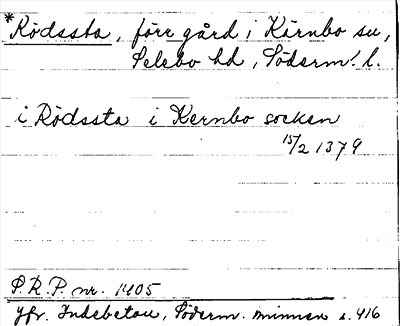 *Rödssta, förr gård i Kärnbo sn,
Selebo hd, Söderm. l.
i Rödssta i Kernbo socken
15/2 1379
P.R.P. nr. 1405
Jfr. Indebetou, Söderm. minnen s. 416